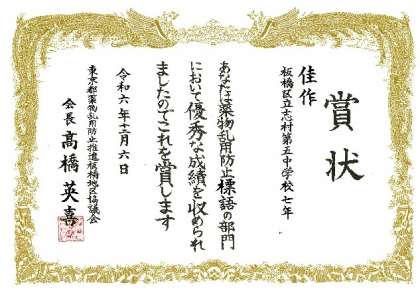 賞状
佳作
板橋区立志村第五中学校七年
あなたは薬物乱用防止標語の部門
において優秀な成績を収められ
ましたのでこれを賞します
令和六年十二月六日
東京都薬物乱用防止推進板橋地区協議会
会長 髙橋英喜